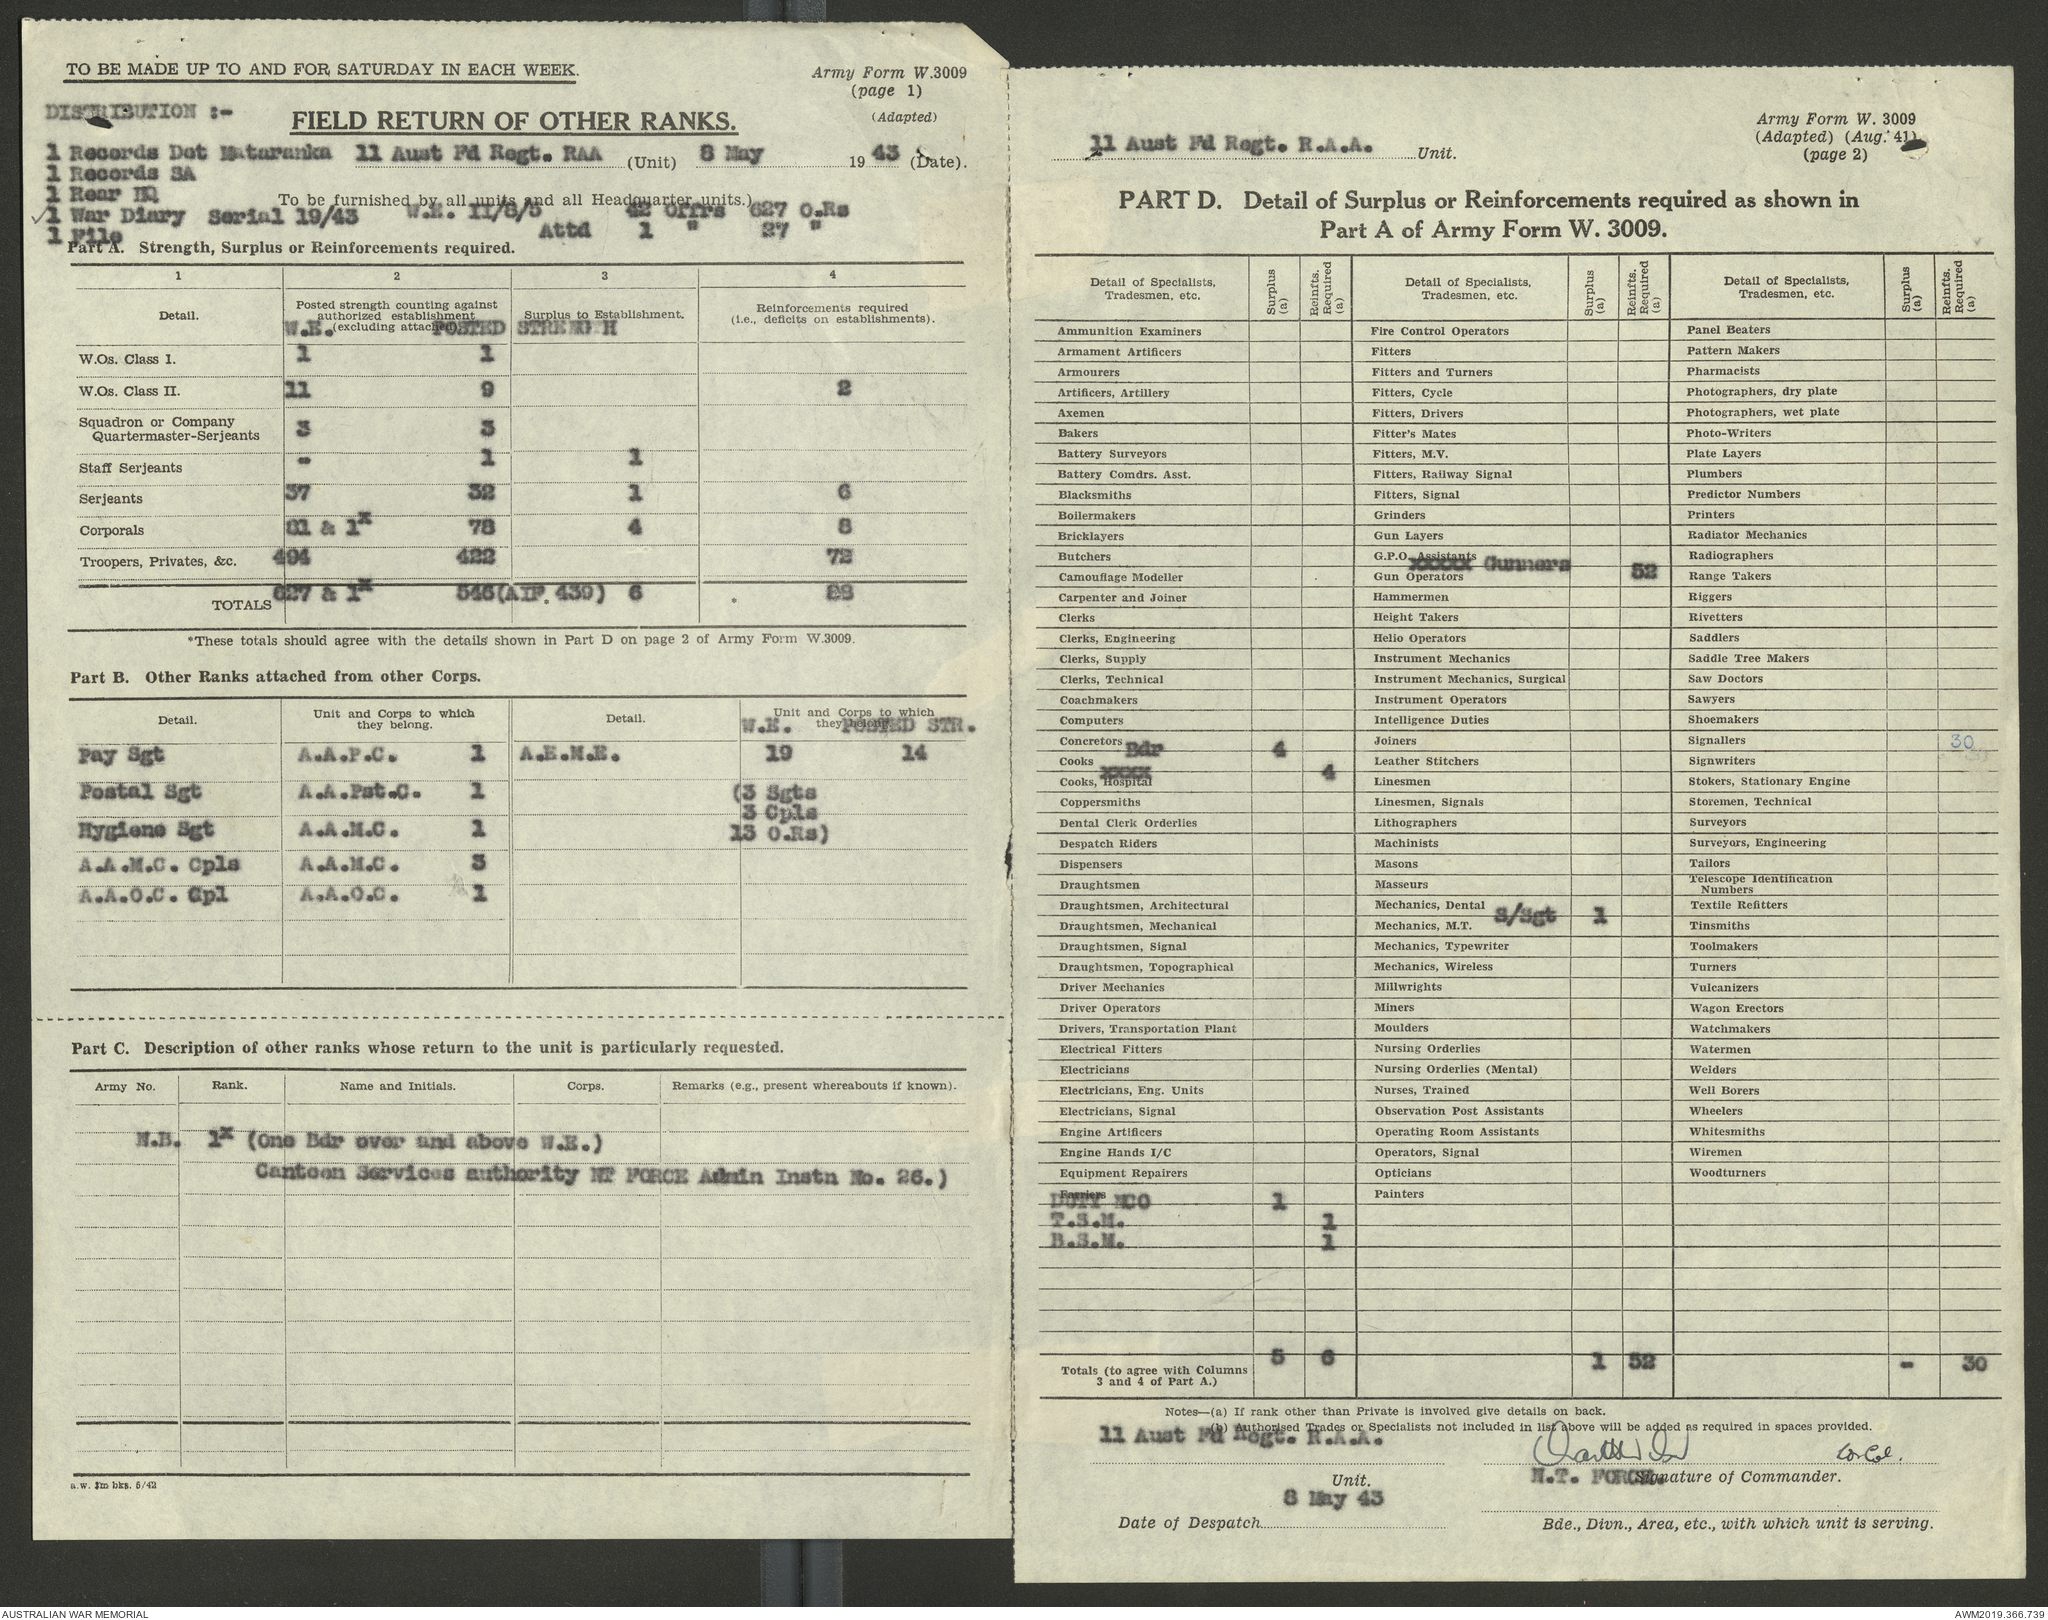 TO BE MADE UP TO AND FOR SATURDAY IN EACH WEEK.
Army Form W.3009
(page 1)
(Adapted)
DISTRIBUTION :-
FIELD RETURN OF OTHER RANKS.
1 Records Det Mataranka 11 Aust Fd Regt. RAA (Unit) 8 May 1943 (Date).
1 Records SA
1 Rear HQ
To be furnished by all units and all Headquarter units.)
1 War Diary Serial 19/43 W.E. II/8/5 42 Offrs 627 O.Rs
1 File Attd 1 " 27 "
Part A. Strength, Surplus or Reinforcements required.
1 2 3 4
Detail. Posted strength counting against authorized establishment (excluding attached) Surplus to Establishment. Reinforcements required (i.e., deficits on establishments).
W.E. POSTED STRENGTH
W.Os. Class I. 1 1
W.Os. Class II. 11 9 2
Squadron or Company Quartermaster-Serjeants 3 3
Staff Serjeants - 1 1
Serjeants 37 32 1 6
Corporals 81 & 1x 78 4 8
Troopers, Privates, &c. 494 422 72
TOTALS 627 & 1x 546 (AIF. 439) 6 * 88
*These totals should agree with the details shown in Part D on page 2 of Army Form W.3009.
Part B. Other Ranks attached from other Corps.
Detail. Unit and Corps to which they belong. Detail. Unit and Corps to which they belong.
W.E. POSTED STR.
Pay Sgt A.A.P.C. 1 A.E.M.E. 19 14
Postal Sgt A.A.Pst.C. 1 (3 Sgts
3 Cpls
Hygiene Sgt A.A.M.C. 1 13 O.Rs)
A.A.M.C. Cpls A.A.M.C. 3
A.A.O.C. Cpl A.A.O.C. 1
Part C. Description of other ranks whose return to the unit is particularly requested.
Army No. Rank. Name and Initials. Corps. Remarks (e.g., present whereabouts if known).
N.B. 1x (One Bdr over and above W.E.)
Canteen Services authority NT FORCE Admin Instn No. 26.)
a.w. 3m bks. 5/42
Army Form W. 3009
(Adapted) (Aug. 41)
(page 2)
11 Aust Fd Regt. R.A.A. Unit.
PART D. Detail of Surplus or Reinforcements required as shown in
Part A of Army Form W. 3009.
Detail of Specialists, Tradesmen, etc. Surplus (a) Reinfts. Required (a) Detail of Specialists, Tradesmen, etc. Surplus (a) Reinfts. Required (a) Detail of Specialists, Tradesmen, etc. Surplus (a) Reinfts. Required (a)
Ammunition Examiners Fire Control Operators Panel Beaters
Armament Artificers Fitters Pattern Makers
Armourers Fitters and Turners Pharmacists
Artificers, Artillery Fitters, Cycle Photographers, dry plate
Axemen Fitters, Drivers Photographers, wet plate
Bakers Fitter's Mates Photo-Writers
Battery Surveyors Fitters, M.V. Plate Layers
Battery Comdrs. Asst. Fitters, Railway Signal Plumbers
Blacksmiths Fitters, Signal Predictor Numbers
Boilermakers Grinders Printers
Bricklayers Gun Layers Radiator Mechanics
Butchers G.P.O. Assistants Radiographers
Camouflage Modeller Gun Operators xxxxx Gunners 52 Range Takers
Carpenter and Joiner Hammermen Riggers
Clerks Height Takers Rivetters
Clerks, Engineering Helio Operators Saddlers
Clerks, Supply Instrument Mechanics Saddle Tree Makers
Clerks, Technical Instrument Mechanics, Surgical Saw Doctors
Coachmakers Instrument Operators Sawyers
Computers Intelligence Duties Shoemakers
Concretors Bdr 4 Joiners Signallers 30
Cooks Leather Stitchers Signwriters
Cooks, Hospital xxxx 4 Linesmen Stokers, Stationary Engine
Coppersmiths Linesmen, Signals Storemen, Technical
Dental Clerk Orderlies Lithographers Surveyors
Despatch Riders Machinists Surveyors, Engineering
Dispensers Masons Tailors
Draughtsmen Masseurs Telescope Identification Numbers
Draughtsmen, Architectural Mechanics, Dental Textile Refitters
Draughtsmen, Mechanical Mechanics, M.T. S/Sgt 1 Tinsmiths
Draughtsmen, Signal Mechanics, Typewriter Toolmakers
Draughtsmen, Topographical Mechanics, Wireless Turners
Driver Mechanics Millwrights Vulcanizers
Driver Operators Miners Wagon Erectors
Drivers, Transportation Plant Moulders Watchmakers
Electrical Fitters Nursing Orderlies Watermen
Electricians Nursing Orderlies (Mental) Welders
Electricians, Eng. Units Nurses, Trained Well Borers
Electricians, Signal Observation Post Assistants Wheelers
Engine Artificers Operating Room Assistants Whitesmiths
Engine Hands I/C Operators, Signal Wiremen
Equipment Repairers Opticians Woodturners
Farriers Painters
DUTY NCO 1
T.S.M. 1
B.S.M. 1
Totals (to agree with Columns 3 and 4 of Part A.) 5 6 1 52 - 30
Notes—(a) If rank other than Private is involved give details on back.
(b) Authorised Trades or Specialists not included in list above will be added as required in spaces provided.
11 Aust Fd Regt. R.A.A.
Lt Col.
Unit. N.T. FORCE. Signature of Commander.
8 May 43
Date of Despatch Bde., Divn., Area, etc., with which unit is serving.
AUSTRALIAN WAR MEMORIAL
AWM2019.366.739